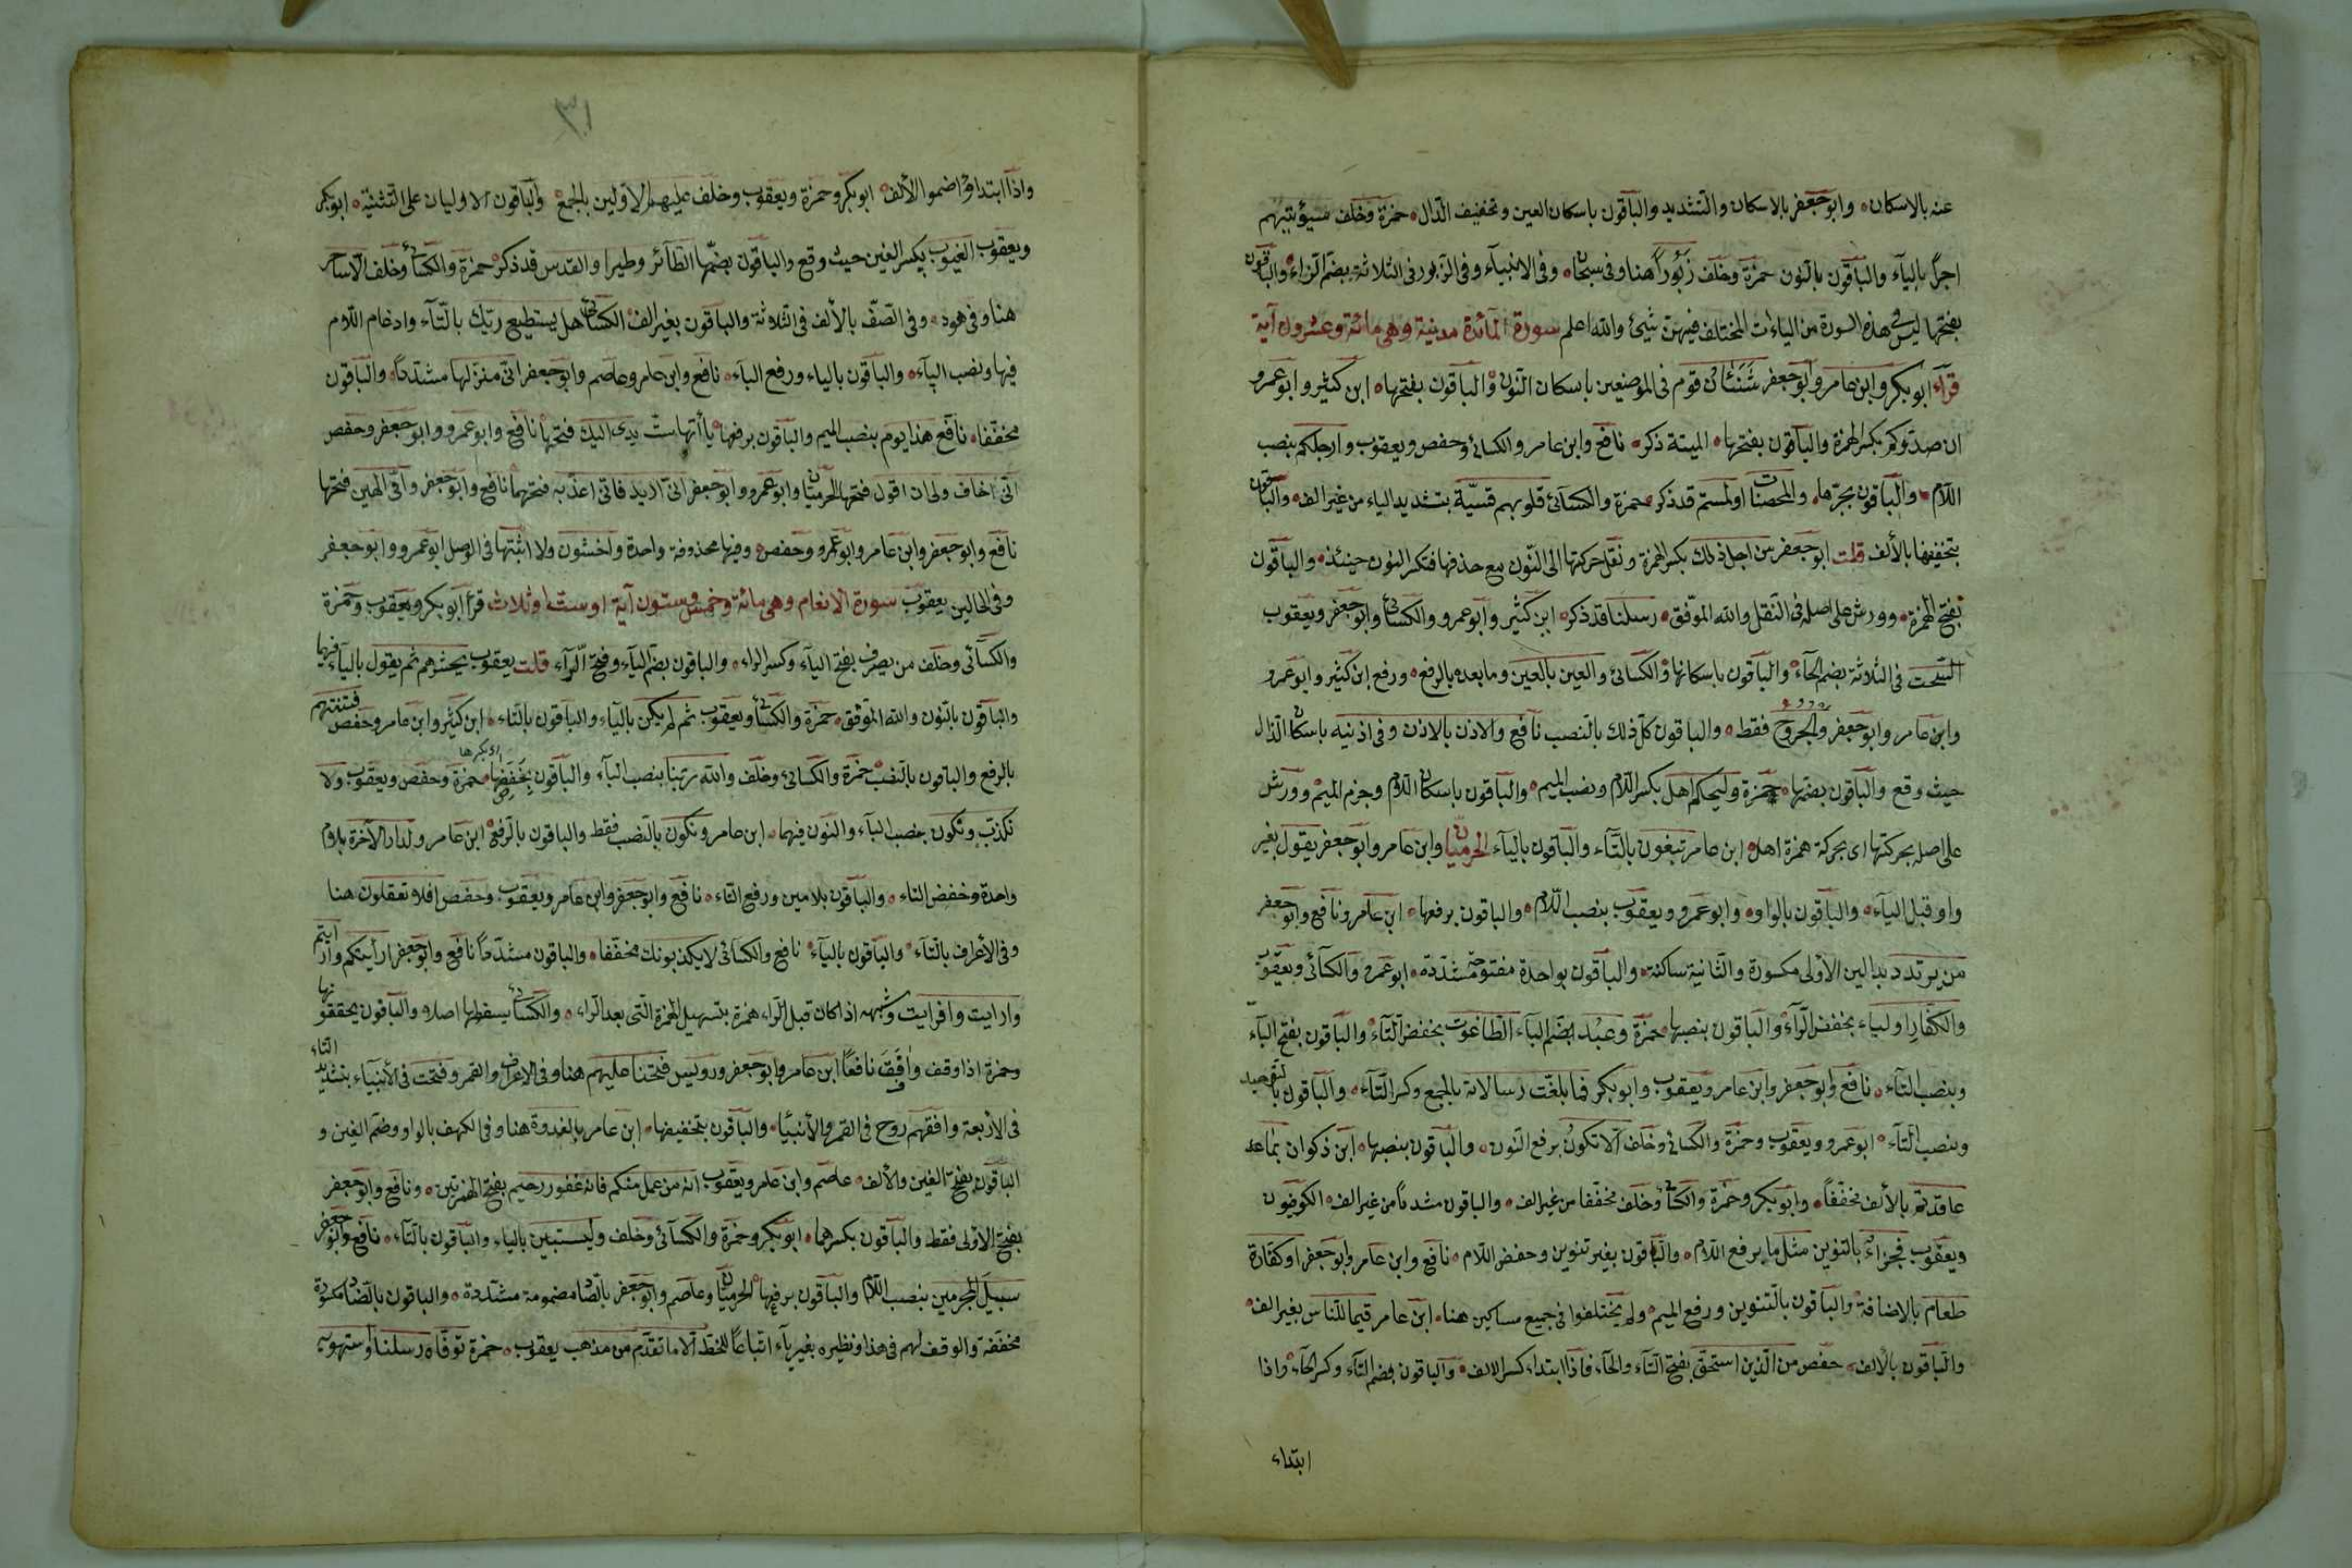 عنه بالاسكان وابو جعفر بالاسكان والتشديد والباقون باسكان العين وتخفيف الدال حمزة وخلف سيؤتيهم
اجرا بالياء والباقون بالنون حمزة وخلف زبورا هنا وفى سبحان وفى الانبياء وفى الزبور فى الثلاثة بضم الزاء والباقون
بفتحها ليس فى هذه السورة من الياءات المختلف فيهن شيئ والله اعلم سورة المائدة مدنية وهى مائة وعشرون آية
قرأ ابو بكر وابن عامر وابو جعفر شنئان قوم فى الموضعين باسكان النون والباقون بفتحها ابن كثير وابو عمرو
ان صدوكم بكسر الهمزة والباقون بفتحها الميتة ذكر نافع وابن عامر والكسائى وحفص ويعقوب وارجلكم بنصب
اللام والباقون بجرها والمحصنات اولمستم قد ذكر حمزة والكسائى قلوبهم قسيّة بتشديد الياء من غير الف والباقون
بتخفيفها بالألف قلت ابو جعفر من اجل ذلك بكسر الهمزة ونقل حركتها الى النون مع حذفها فتكسر النون حينئذ والباقون
بفتح الهمزة وورش على اصله فى النقل والله الموفق رسلنا قد ذكر ابن كثير وابو عمرو والكسائى وابو جعفر ويعقوب
السحت فى الثلاثة بضم الحاء والباقون باسكانها والكسائى والعين بالعين وما بعده بالرفع ورفع ابن كثير وابو عمرو
وابن عامر وابو جعفر والجروح فقط والباقون كل ذلك بالنصب نافع والاذن بالاذن وفى اذنيه باسكان الذال
حيث وقع والباقون بضمها حمزة وليحكم اهل بكسر اللام ونصب الميم والباقون باسكان اللام وجزم الميم وورش
على اصله بحركتها اى بحركة همزة اهل ابن عامر تبغون بالتاء والباقون بالياء الحرميان وابن عامر وابو جعفر يقول بغير
واو قبل الياء والباقون بالواو وابو عمرو ويعقوب بنصب اللام والباقون برفعها ابن عامر ونافع وابو جعفر
من يرتدد بدالين الأولى مكسورة والثانية ساكنة والباقون بواحدة مفتوحة مشددة ابو عمرو والكسائى ويعقوب
والكفار اولياء بخفض الراء والباقون بنصبها حمزة وعبد بضم الباء الطاغوت بخفض التاء والباقون بفتح الباء
وبنصب التاء نافع وابو جعفر وابن عامر ويعقوب وابو بكر فما بلغت رسالاته بالجمع وكسر التاء والباقون بالتوحيد
وبنصب التاء ابو عمرو ويعقوب وحمزة والكسائى وخلف الا تكون برفع النون والباقون بنصبها ابن ذكوان بما عد
عاقدتم بالألف مخففا وابو بكر وحمزة والكسائى وخلف مخففا من غير الف والباقون مشددا من غير الف الكوفيون
ويعقوب فجزاء بالتنوين مثل ما برفع اللام والباقون بغير تنوين وخفض اللام نافع وابن عامر وابو جعفر او كفارة
طعام بالاضافة والباقون بالتنوين ورفع الميم ولم يختلفوا فى جميع مساكين هنا ابن عامر قيما للناس بغير الف
والباقون بالألف حفص من الذين استحق بفتح التاء والحاء فاذا ابتداء كسر الالف والباقون بضم التاء وكسر الحاء واذا
ابتداء
٣١
واذا ابتداؤا ضموا الألف ابو بكر وحمزة ويعقوب وخلف عليهم الاولين بالجمع والباقون الاوليان على التثنية ابو بكر
ويعقوب الغيوب بكسر الغين حيث وقع والباقون بضمها الطائر وطيرا والقدس قد ذكر حمزة والكسائى وخلف الا ساحر
هنا وفى هود وفى الصف بالألف فى الثلاثة والباقون بغير الف الكسائى هل يستطيع ربك بالتاء وادغام اللام
فيها ونصب الباء والباقون بالياء ورفع الباء نافع وابن عامر وعاصم وابو جعفر انى منزلها مشددا والباقون
مخففا نافع هذا يوم بنصب الميم والباقون برفعها يا أتها ست يدى اليك فتحها نافع وابو عمرو وابو جعفر وحفص
انى اخاف ولى ان اقول فتحها الحرميان وابو عمرو وابو جعفر انى اريد فانى اعذبه فتحهما نافع وابو جعفر وامى الهين فتحها
نافع وابو جعفر وابن عامر وابو عمرو وحفص وفيها محذوفة واحدة واخشون ولا اثبتها فى الوصل ابو عمرو وابو جعفر
وفى الحالين يعقوب سورة الانعام وهى مائة وخمس وستون آية او ست او ثلاث قرأ ابو بكر ويعقوب وحمزة
والكسائى وخلف من يصرف بفتح الياء وكسر الراء والباقون بضم الياء وفتح الراء قلت يعقوب يحشرهم ثم يقول بالياء فيهما
والباقون بالنون والله الموفق حمزة والكسائى ويعقوب ثم لم يكن بالياء والباقون بالتاء ابن كثير وابن عامر وحفص فتنتهم
بالرفع والباقون بالنصب حمزة والكسائى وخلف والله ربنا بنصب الباء والباقون بخفضها حمزة وحفص ويعقوب ولا
نكذب ونكون بنصب الباء والنون فيهما ابن عامر ونكون بالنصب فقط والباقون بالرفع ابن عامر ولدار الآخرة بلام
واحدة وخفض التاء والباقون بلامين ورفع التاء نافع وابو جعفر وابن عامر ويعقوب وحفص افلا تعقلون هنا
وفى الأعراف بالتاء والباقون بالياء نافع والكسائى لا يكذبونك مخففا والباقون مشددا نافع وابو جعفر ارأيتكم وارأيتم
وارايت وافرايت وشبهه اذا كان قبل الراء همزة بتسهيل الهمزة التى بعد الراء والكسائى يسقطها اصلا والباقون يحققونها
وحمزة اذا وقف وافق نافعا ابن عامر وابو جعفر ورويس فتحنا عليهم هنا وفى الاعراف والقمر وفتحت فى الأنبياء بتشديد التاء
فى الأربعة وافقهم روح فى القمر والأنبياء والباقون بتخفيفها ابن عامر بالغدوة هنا وفى الكهف بالواو وضم الغين و
الباقون بفتح الغين والألف عاصم وابن عامر ويعقوب انه من عمل منكم فانه غفور رحيم بفتح الهمزتين ونافع وابو جعفر
بفتح الاولى فقط والباقون بكسرهما ابو بكر وحمزة والكسائى وخلف وليستبين بالياء والباقون بالتاء نافع وابو جعفر
سبيل المجرمين بنصب اللام والباقون برفعها الحرميان وعاصم وابو جعفر بالصاد مضمومة مشددة والباقون بالضاد مكسورة
مخففة والوقف لهم فى هذا ونظيره بغير ياء اتباعا للخط الا ما تقدم من مذهب يعقوب حمزة توفاه رسلنا واستهويه